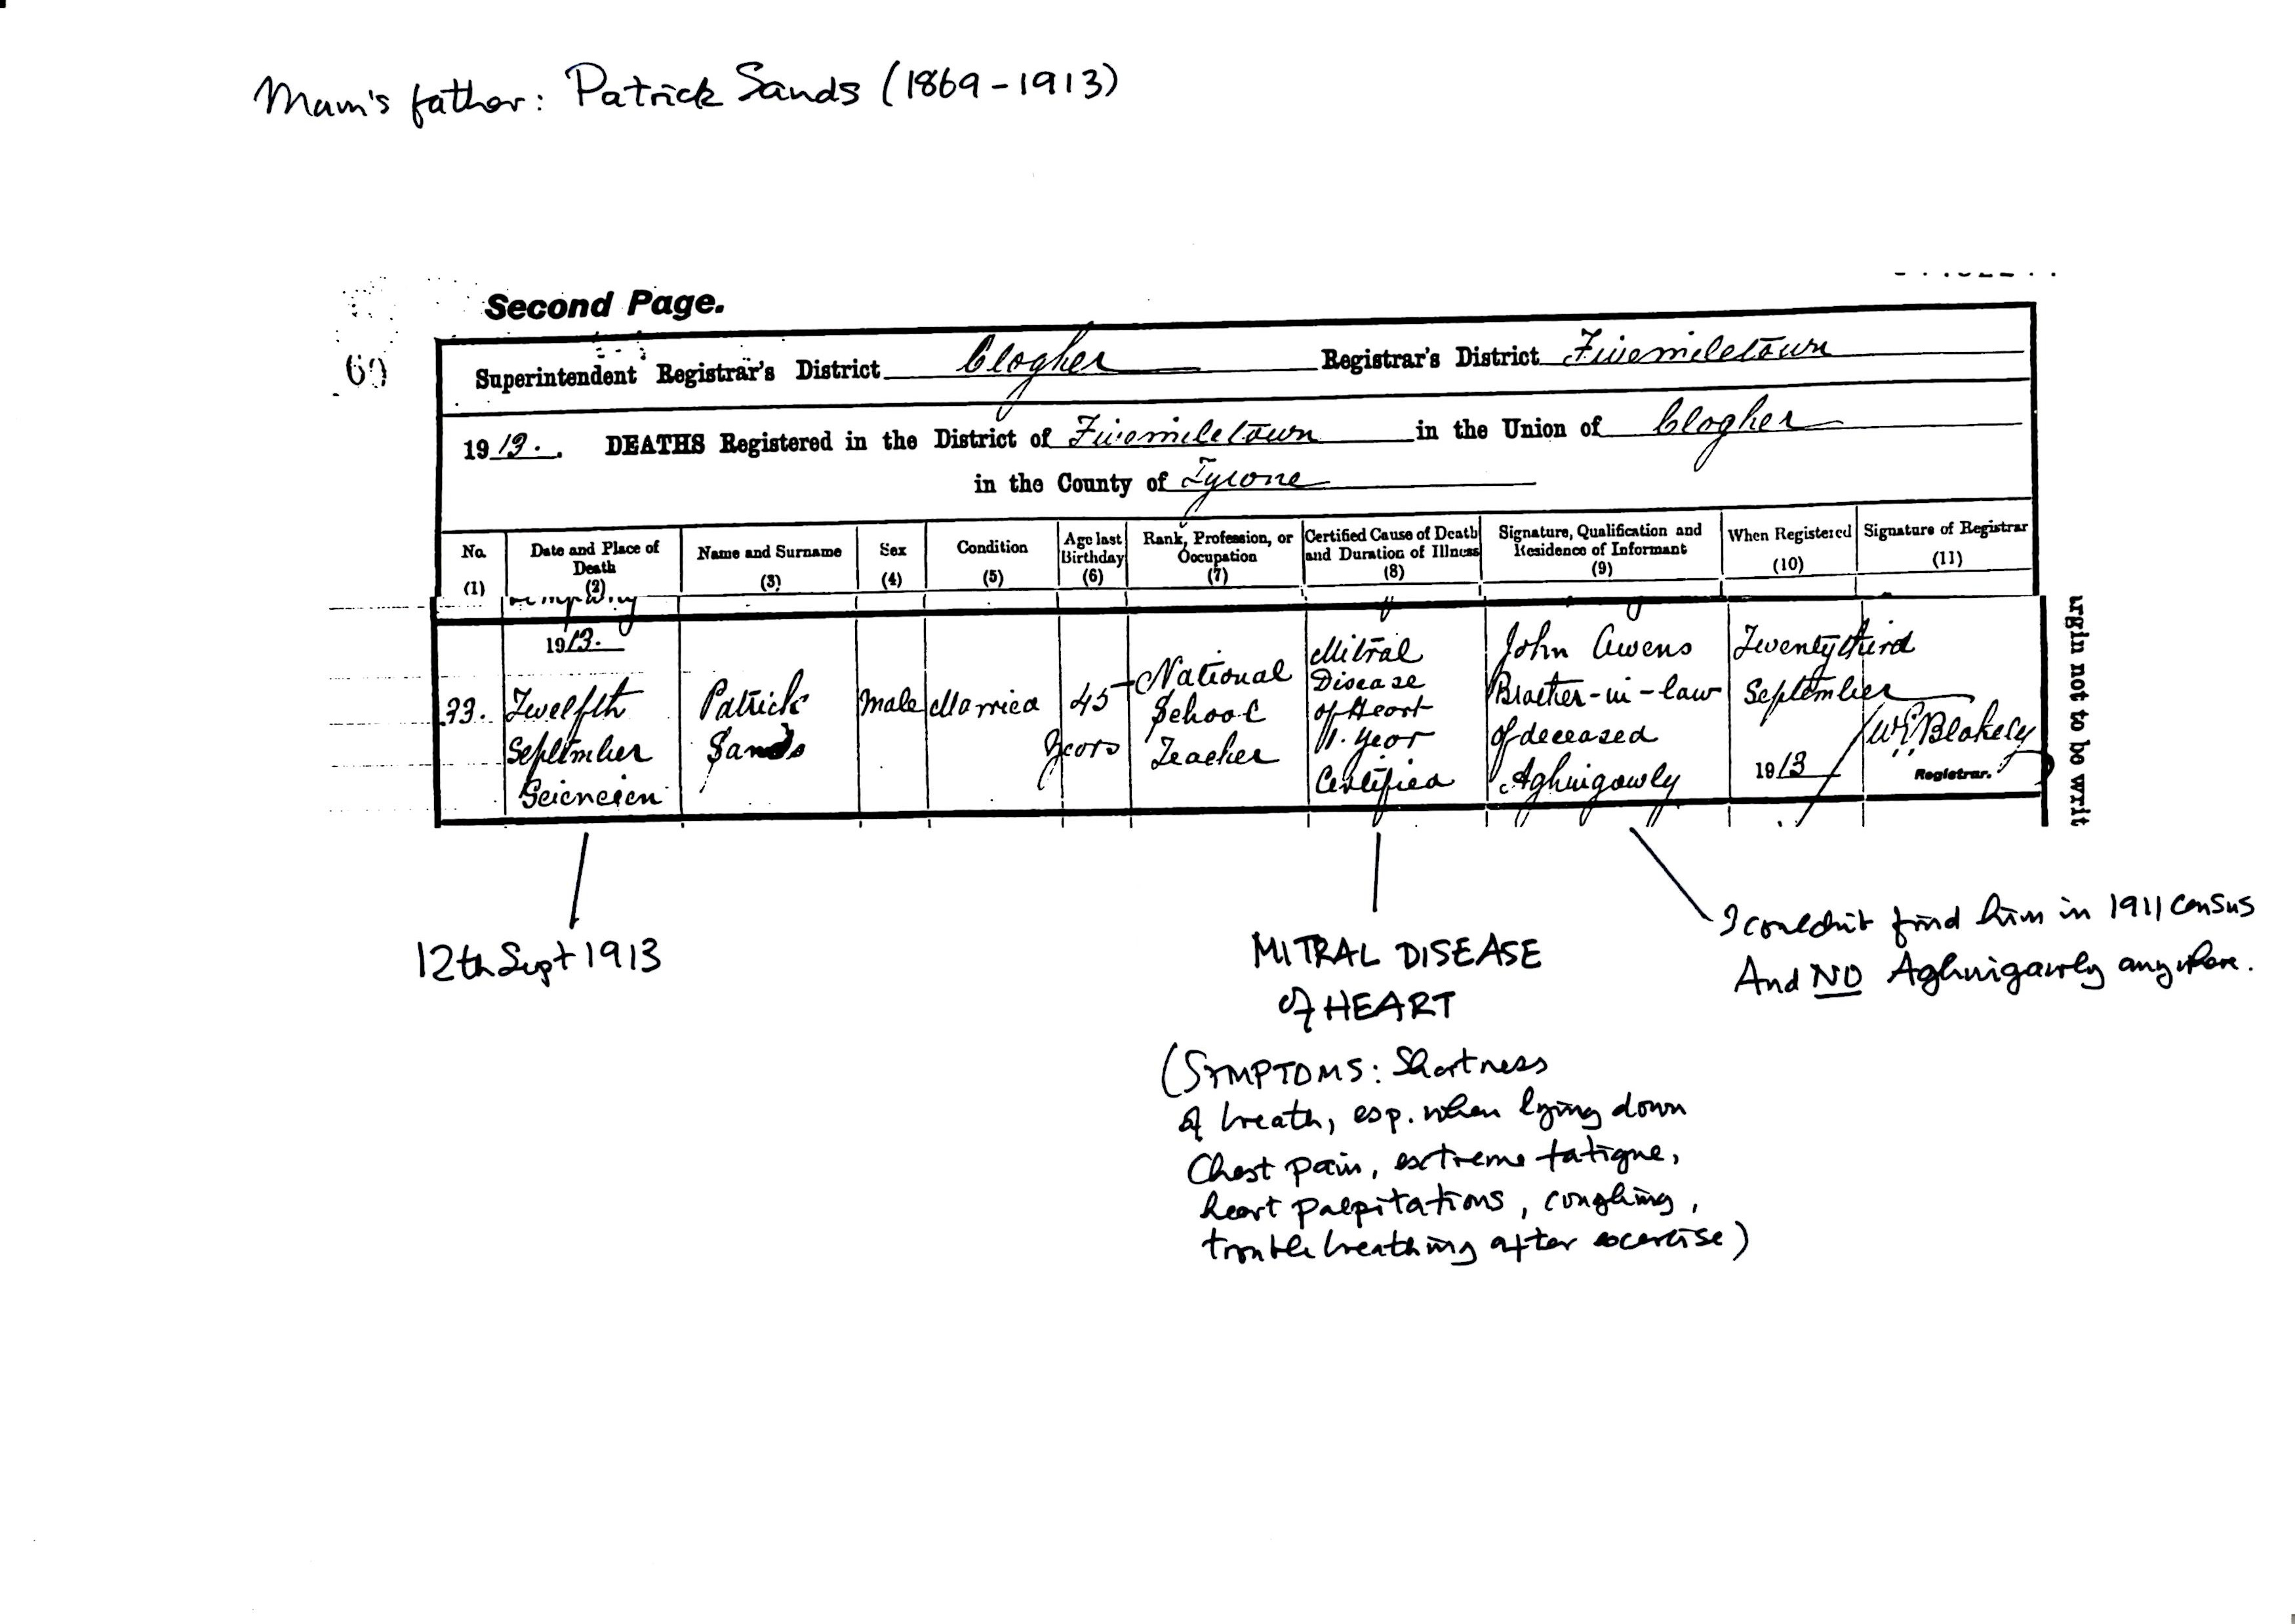 Mum's father: Patrick Sands (1869-1913)
Second Page.
Superintendent Registrar's District Clogher Registrar's District Fivemiletown
1913. DEATHS Registered in the District of Fivemiletown in the Union of Clogher
in the County of Tyrone
No. (1)
Date and Place of Death (2)
Name and Surname (3)
Sex (4)
Condition (5)
Age last Birthday (6)
Rank, Profession, or Occupation (7)
Certified Cause of Death and Duration of Illness (8)
Signature, Qualification and Residence of Informant (9)
When Registered (10)
Signature of Registrar (11)
33.
1913.
Twelfth
September
Patrick
Sands
Male
Married
45
years
National
School
Teacher
Mitral
Disease
of Heart
1. year
Certified
John Owens
Brother-in-law
of deceased
Aghnigowly
Twentythird
September
1913
W. Blakely
Registrar.
urgin not to be writ
12th Sept 1913
MITRAL DISEASE
of HEART
(SYMPTOMS: Shortness
of breath, esp. when lying down
Chest pain, extreme fatigue,
heart palpitations, coughing,
trouble breathing after excercise)
I couldn't find him in 1911 census
And NO Aghnigawly anywhere.